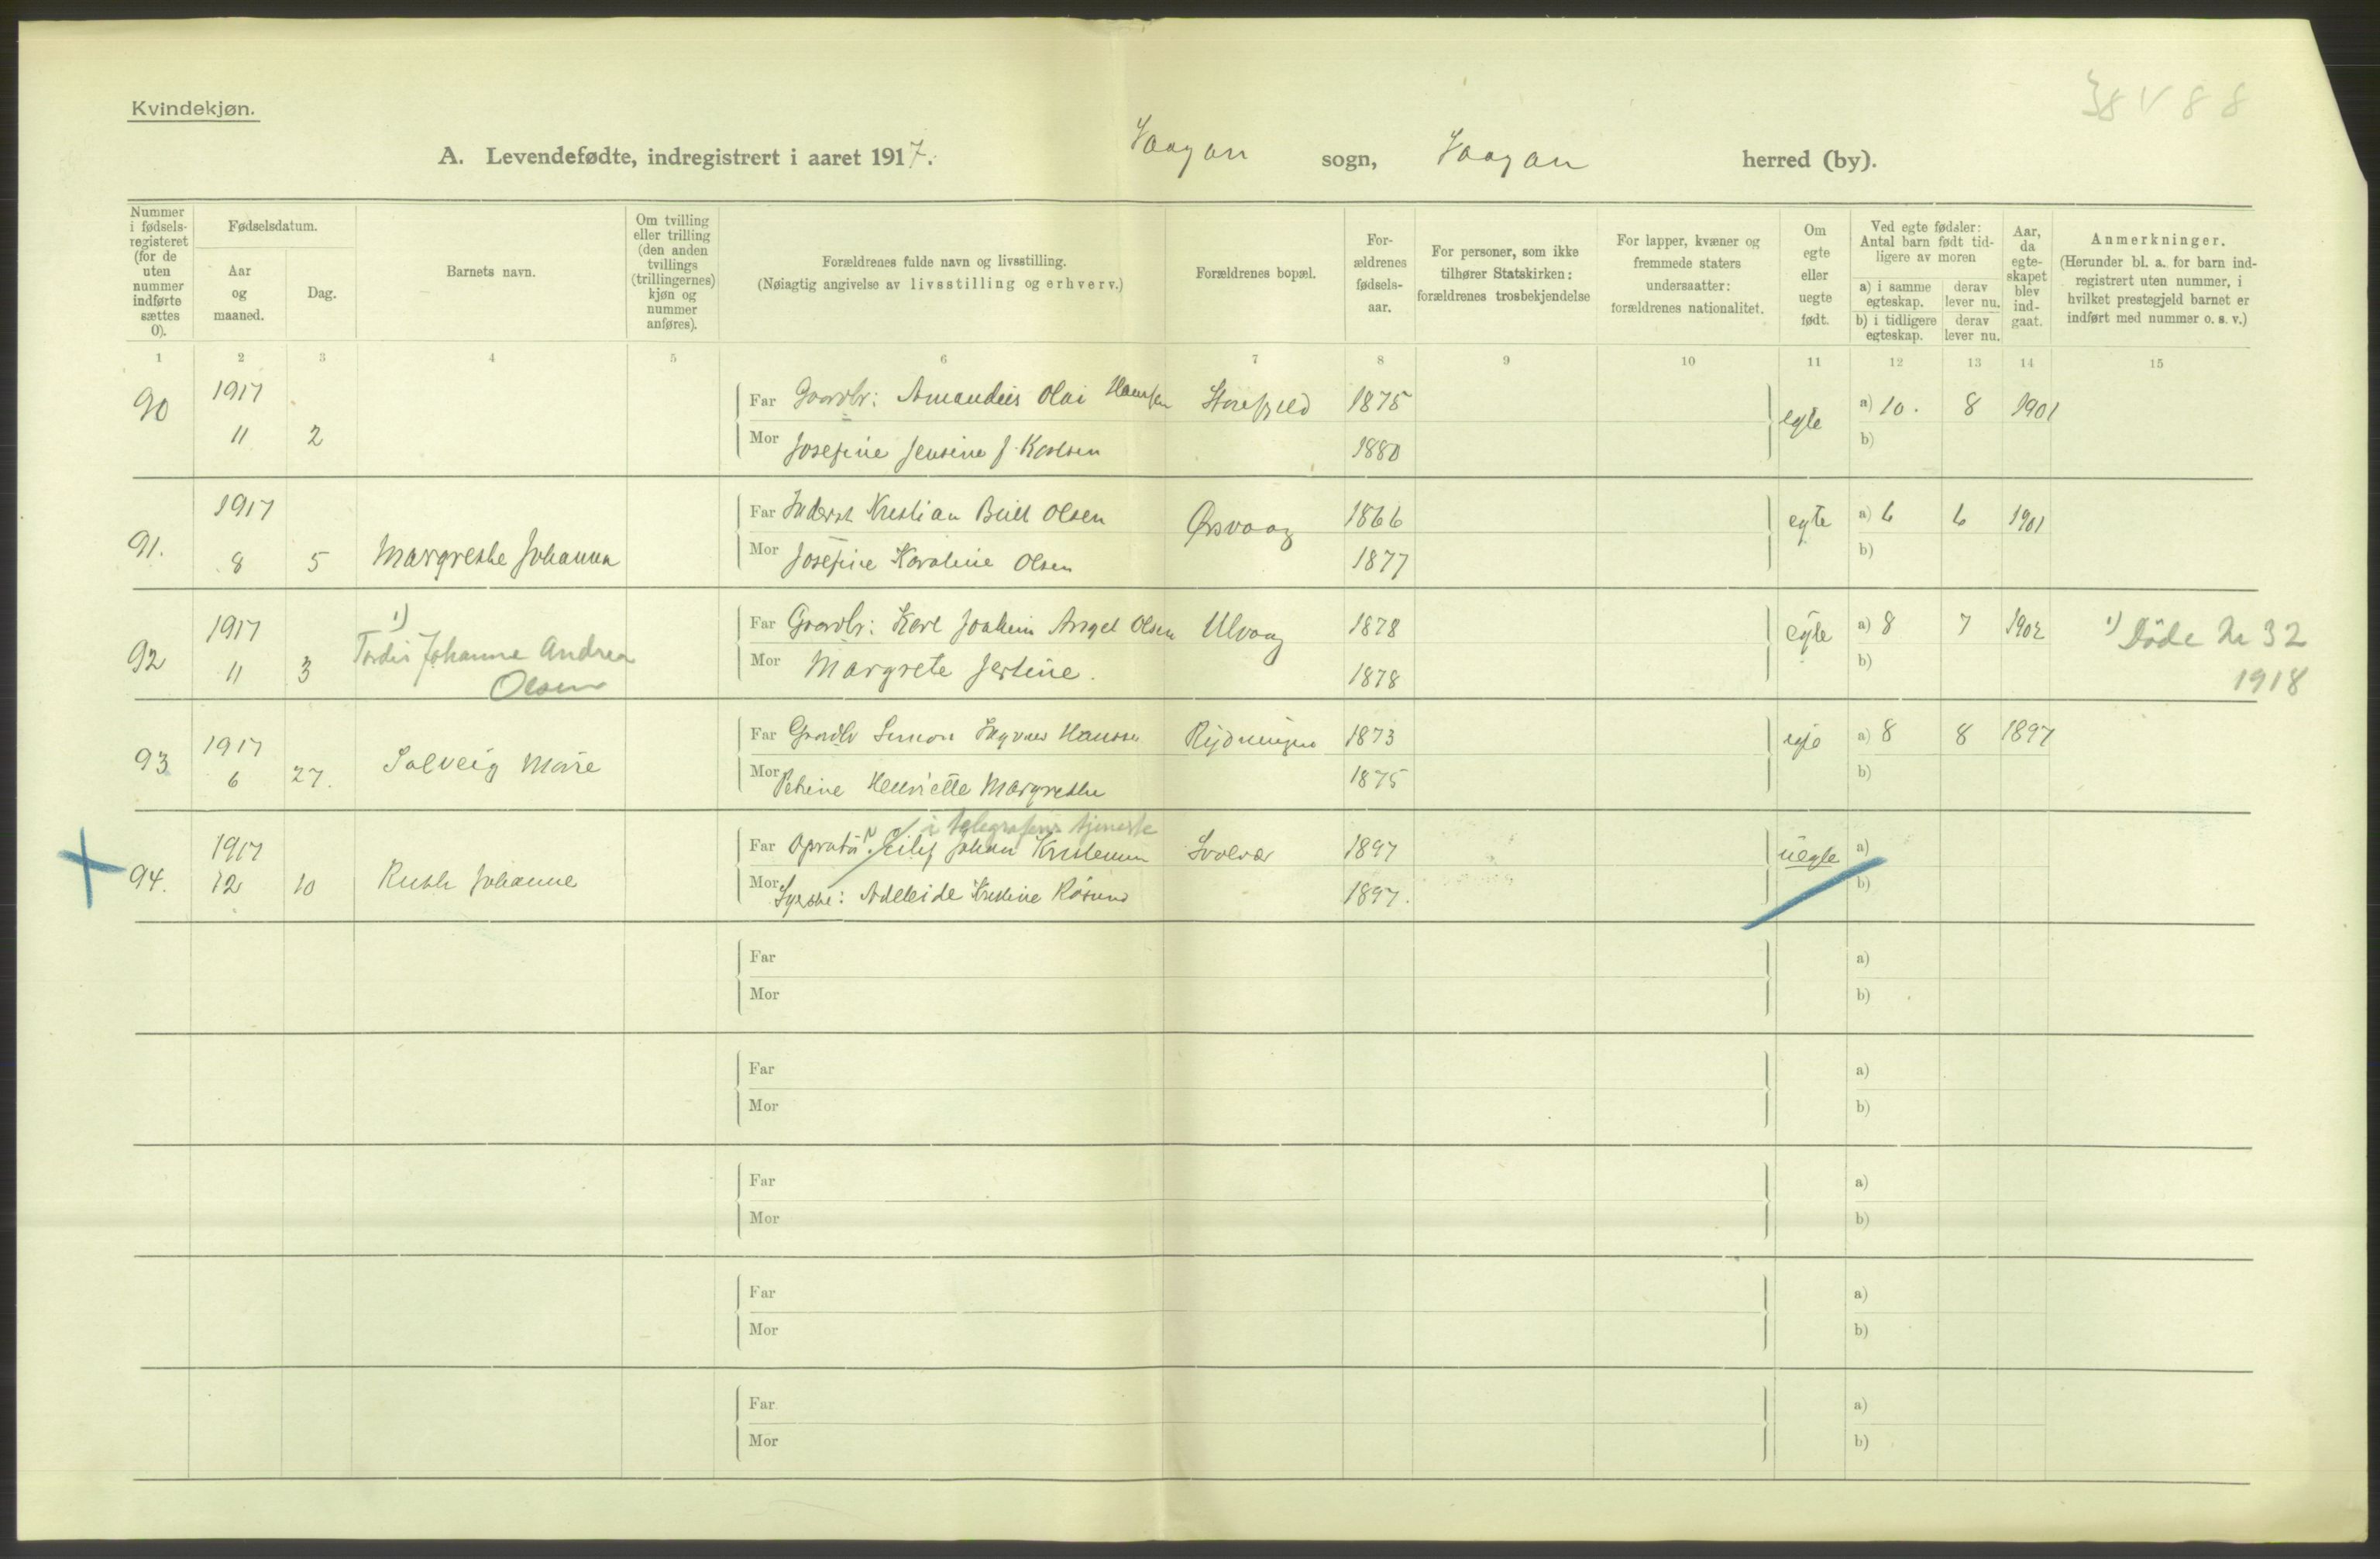 Kvindekjøn.
38 V 88
A. Levendefødte, indregistrert i aaret 1917. Vaagan sogn, Vaagan herred (by).
Nummer i fødsels-registeret (for de uten nummer indførte sættes 0).
Fødselsdatum.
Aar og maaned.
Dag.
Barnets navn.
Om tvilling eller trilling (den anden tvillings (trillingernes) kjøn og nummer anføres).
Forældrenes fulde navn og livsstilling.
(Nøiagtig angivelse av livsstilling og erhverv.)
Forældrenes bopæl.
For-ældrenes fødsels-aar.
For personer, som ikke tilhører Statskirken: forældrenes trosbekjendelse
For lapper, kvæner og fremmede staters undersaatter: forældrenes nationalitet.
Om egte eller uegte født.
Ved egte fødsler: Antal barn født tid-ligere av moren
a) i samme egteskap. derav lever nu.
b) i tidligere egteskap. derav lever nu.
Aar, da egte-skapet blev ind-gaat.
Anmerkninger.
(Herunder bl. a. for barn ind-registrert uten nummer, i hvilket prestegjeld barnet er indført med nummer o. s. v.)
1 2 3 4 5 6 7 8 9 10 11 12 13 14 15
90 1917 Far Gaardbr: Amandus Olai Hansen Storfjeld 1875 egte a) 10. 8 1901
11 2 Mor Josefine Jensine J. Karlsen 1880 b)
91. 1917 Far Kristian Olsen Ørsvaag 1866 egte a) 6 6 1901
8 5 Margrethe Johanna Mor Josefine Karoline Olsen 1877 b)
92 1917 1) Far Gaardbr: Karl Joakim Angel Olsen Ulvaag 1878 egte a) 8 7 1902 1) Döde Nr 32
11 3 Tordis Johanne Andrea Mor Margrete Jertine. 1878 b) 1918
Olsen
93 1917 Far Gaardbr Simon Hansen 1873 egte a) 8 8 1897
6 27. Solveig Marie Mor Petrine Henriette Margrethe 1875 b)
i telegrafens tjeneste
94. 1917 Far Opratör Eilif Johan Kristensen Svolvær 1897 uegte a)
12 10 Ruth Johanne Mor Syerske: Adeleide Kristine Røsund 1897. b)
Far a)
Mor b)
Far a)
Mor b)
Far a)
Mor b)
Far a)
Mor b)
Far a)
Mor b)